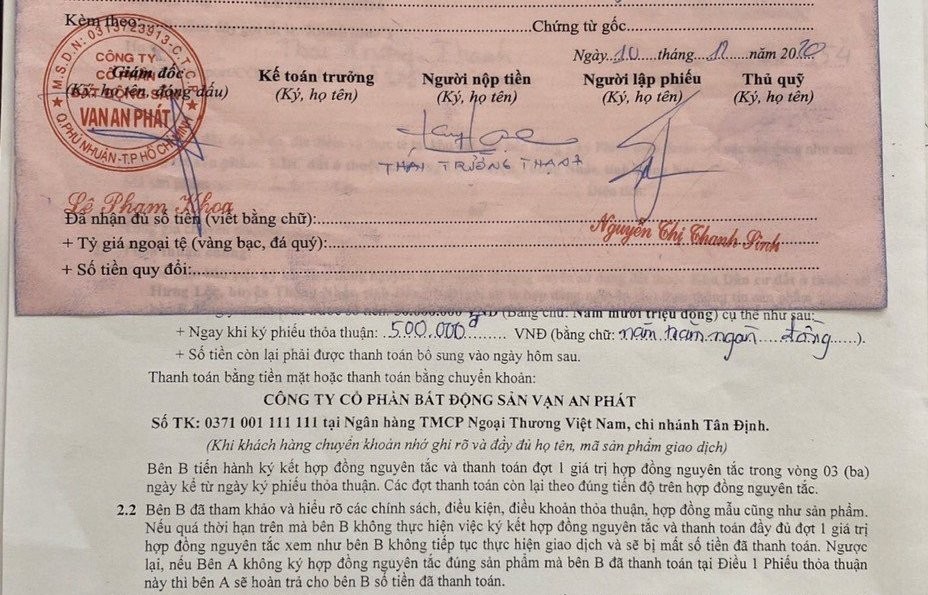 Kèm theo:......Chứng từ gốc......
Ngày 10 tháng năm 2020
M.S.D.N: 0313723913-C.T.C.P
CÔNG TY
CỔ PHẦN
BẤT ĐỘNG SẢN
VẠN AN PHÁT
Q.PHÚ NHUẬN-T.P HỒ CHÍ MINH
Giám đốc Kế toán trưởng Người nộp tiền Người lập phiếu Thủ quỹ
(Ký, họ tên, đóng dấu) (Ký, họ tên) (Ký, họ tên) (Ký, họ tên) (Ký, họ tên)
THÁI TRƯỜNG THẠNH
Lê Phạm Khoa
Đã nhận đủ số tiền (viết bằng chữ):......
Nguyễn Thị Thanh Sinh
+ Tỷ giá ngoại tệ (vàng bạc, đá quý):......
+ Số tiền quy đổi:......
VNĐ (Bằng chữ: Năm mươi triệu đồng) cụ thể như sau:
+ Ngay khi ký phiếu thỏa thuận: 500.000đ VNĐ (bằng chữ: năm trăm ngàn đồng).
+ Số tiền còn lại phải được thanh toán bổ sung vào ngày hôm sau.
Thanh toán bằng tiền mặt hoặc thanh toán bằng chuyển khoản:
CÔNG TY CỔ PHẦN BẤT ĐỘNG SẢN VẠN AN PHÁT
Số TK: 0371 001 111 111 tại Ngân hàng TMCP Ngoại Thương Việt Nam, chi nhánh Tân Định.
(Khi khách hàng chuyển khoản nhớ ghi rõ và đầy đủ họ tên, mã sản phẩm giao dịch)
Bên B tiến hành ký kết hợp đồng nguyên tắc và thanh toán đợt 1 giá trị hợp đồng nguyên tắc trong vòng 03 (ba)
ngày kể từ ngày ký phiếu thỏa thuận. Các đợt thanh toán còn lại theo đúng tiến độ trên hợp đồng nguyên tắc.
2.2 Bên B đã tham khảo và hiểu rõ các chính sách, điều kiện, điều khoản thỏa thuận, hợp đồng mẫu cũng như sản phẩm.
Nếu quá thời hạn trên mà bên B không thực hiện việc ký kết hợp đồng nguyên tắc và thanh toán đầy đủ đợt 1 giá trị
hợp đồng nguyên tắc xem như bên B không tiếp tục thực hiện giao dịch và sẽ bị mất số tiền đã thanh toán. Ngược
lại, nếu Bên A không ký hợp đồng nguyên tắc đúng sản phẩm mà bên B đã thanh toán tại Điều 1 Phiếu thỏa thuận
này thì bên A sẽ hoàn trả cho bên B số tiền đã thanh toán.